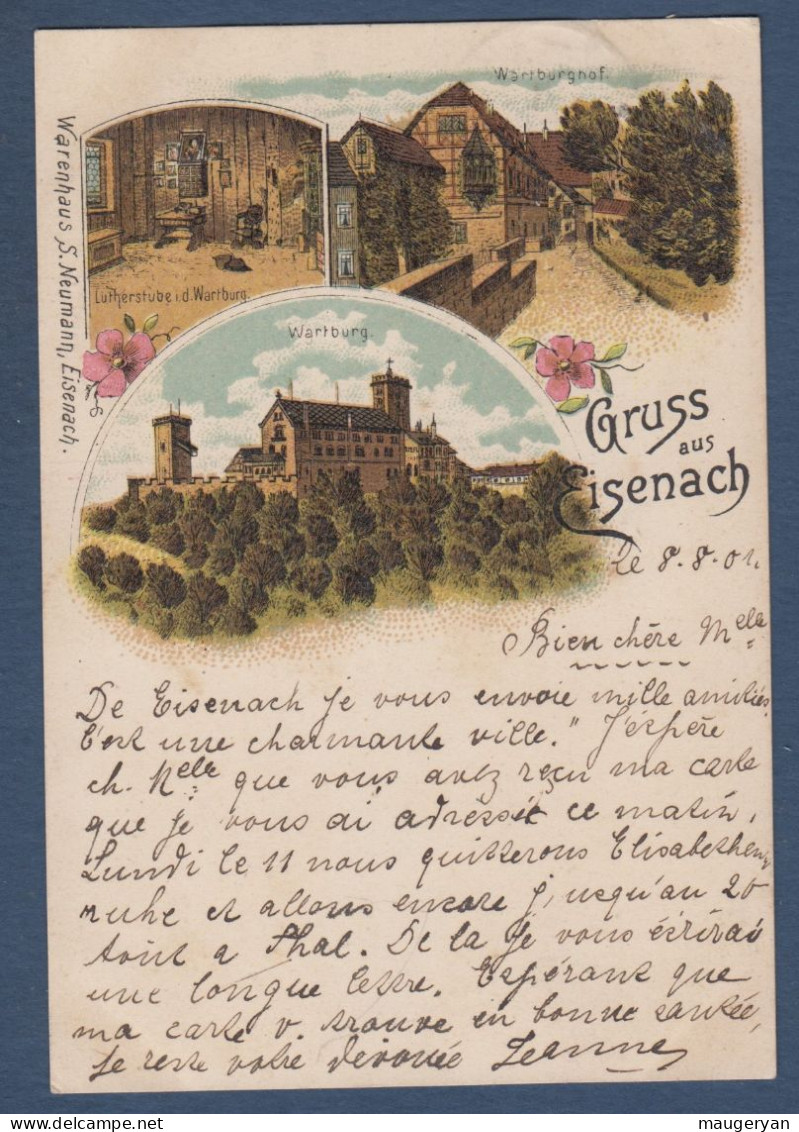 Wartburghof.
Warenhaus S. Neumann, Eisenach.
Lutherstube i. d. Wartburg.
Wartburg.
Gruss
aus
Eisenach
le 8. 8. 01.
Bien chère Melle
De Eisenach je vous envoie mille amitiés.
C'est une charmante ville." J'éspère
ch. Melle que vous avez reçu ma carte
que je vous ai adressée ce matin,
Lundi le 11 nous quitterons Elisabethen
ruhe et allons encore j'usqu'au 20
août a Thal. De la je vous écrirai
une longue lettre. Espérant que
ma carte v. trouve en bonne santée,
je reste votre dévouée Jeanne
maugeryan